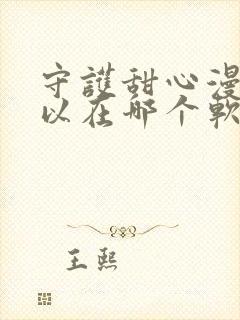 守護甜心漫
以在哪个軟
王熙